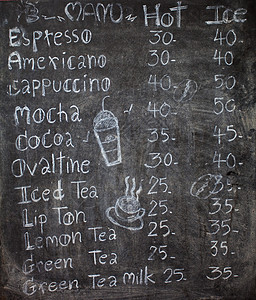 MANU Hot Ice
Espresso 30- 40-
Americano 30- 40-
cappuccino 40- 50
Mocha 40- 50
cocoa 35- 45-
ovaltine 30- 40-
Iced Tea 25- 35-
Lip Ton 25. 35-
Lemon Tea 25. 35-
Green Tea 25- 35-
Green Tea milk 25- 35-